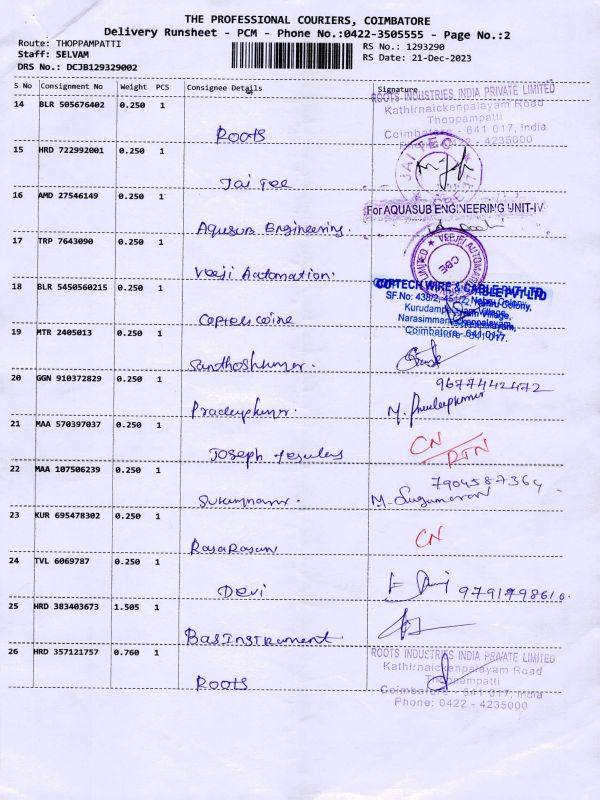 THE PROFESSIONAL COURIERS, COIMBATORE
Delivery Runsheet - PCM - Phone No.:0422-3505555 - Page No.:2
Route: THOPPAMPATTI
RS No.: 1293290
Staff: SELVAM
RS Date: 21-Dec-2023
DRS No.: DCJB129329002
S No Consignment No Weight PCS Consignee Details Signature
ROOTS INDUSTRIES INDIA PRIVATE LIMITED
14 BLR 505676402 0.250 1
Kathirnaickenpalayam Road
Thoppampatti
Coimbatore - 641 017, India
Roots
Phone: 0422 - 4235000
15 HRD 722992001 0.250 1
JAI TEC
Jai Tee
16 AMD 27546149 0.250 1
For AQUASUB ENGINEERING UNIT-IV
Aquasub Engineering.
17 TRP 7643090 0.250 1
VEEJEI AUTOMATION
CBE
Veeji Automation.
18 BLR 5450560215 0.250 1
COPTECH WIRE & CABLE PVT LTD
SF.No: 438/2, 451/2, Nehru Colony,
Kurudampalayam Village,
Narasimmanaickenpalayam,
Coimbatore - 641 017.
19 MTR 2405013 0.250 1
Santhoshkumar.
20 GGN 910372829 0.250 1
9677442472
Pradeepkumar.
M. Pradeepkumar
21 MAA 570397037 0.250 1
CN
RTN
Joseph
22 MAA 107506239 0.250 1
7904587364
Sukumaran.
M. Sugumaran
23 KUR 695478302 0.250 1
CN
RasaRasan
24 TVL 6069787 0.250 1
Devi
9791798610.
25 HRD 383403673 1.505 1
BasInstrument
26 HRD 357121757 0.760 1
ROOTS INDUSTRIES INDIA PRIVATE LIMITED
Kathirnaickenpalayam Road
Thoppampatti
Roots
Coimbatore - 641 017, India
Phone: 0422 - 4235000